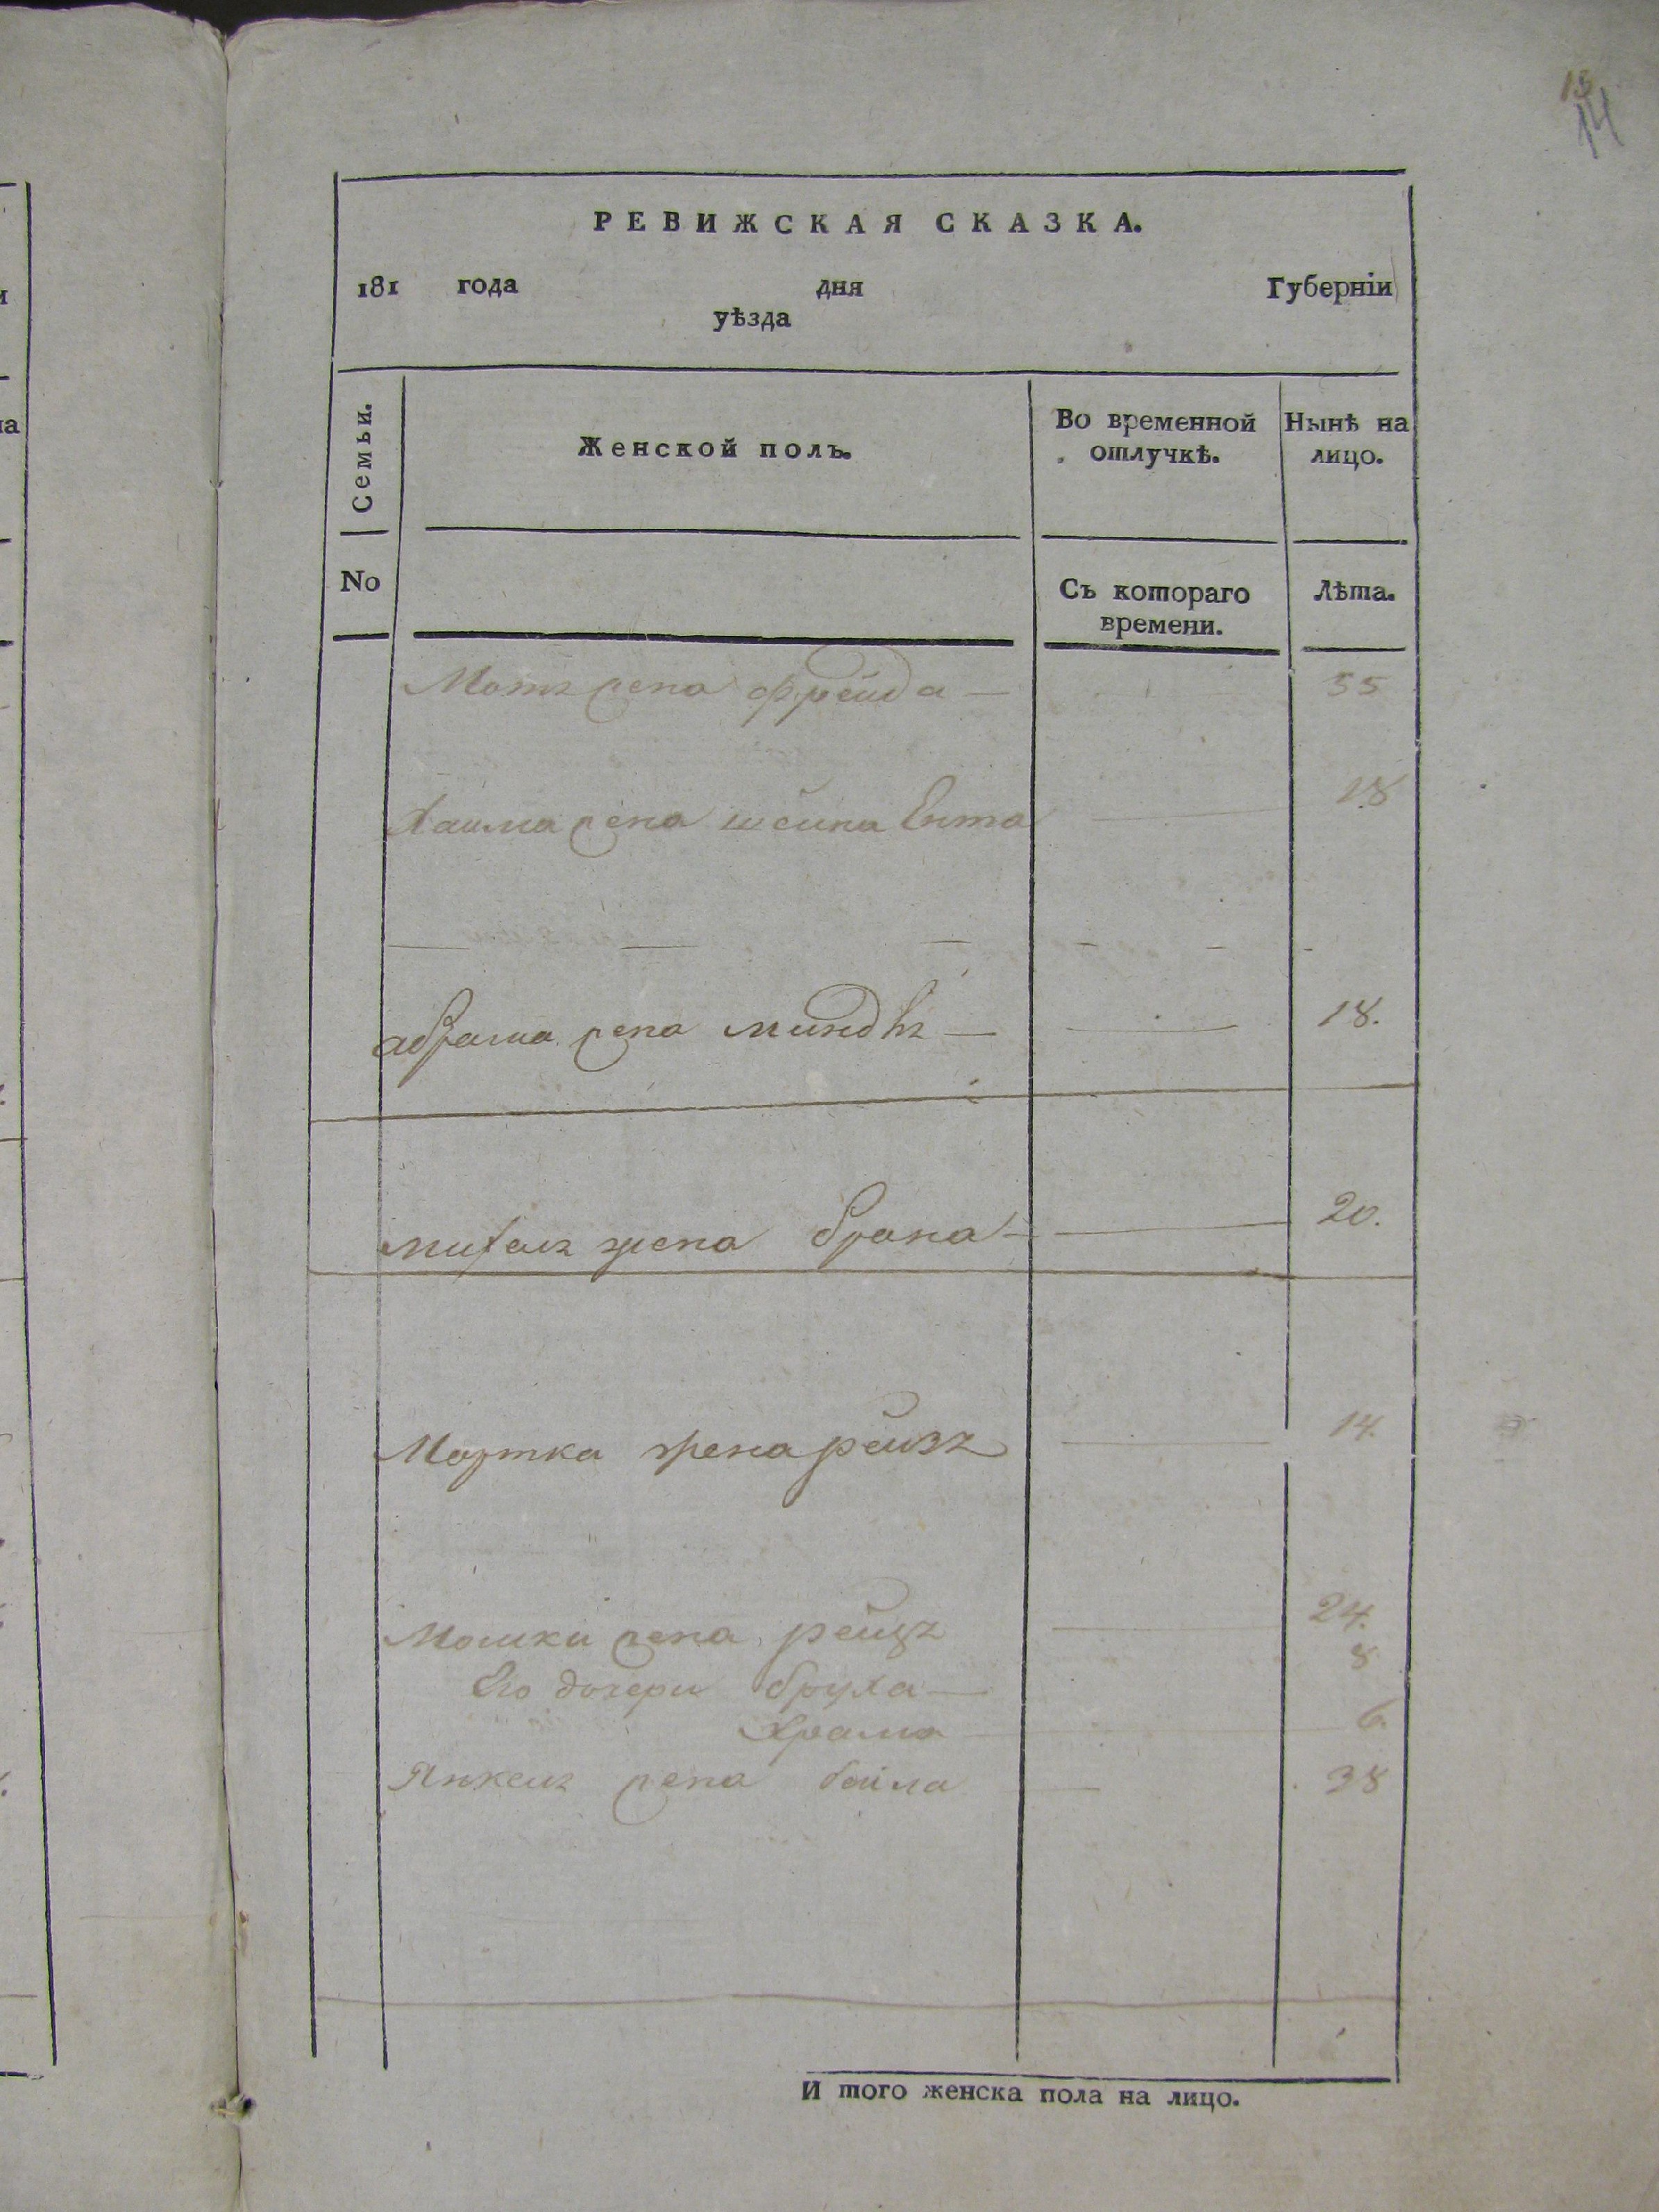 13
14
РЕВИЖСКАЯ СКАЗКА.
181 года дня Губерніи
уѣзда
Семьи.
Женской полъ.
Во временной отлучкѣ.
Нынѣ на лицо.
No
Съ котораго времени.
Лѣта.
жена фрейда — 55
Хаима жена шейна Ента 18
абрама жена миндъ — 18.
жена брана 20.
Мортка жена рейзъ 14.
Мошки жена рейзъ 24.
Его дочери бруха — 8
Храма 6
Янкель жена бейла 38
И того женска пола на лицо.